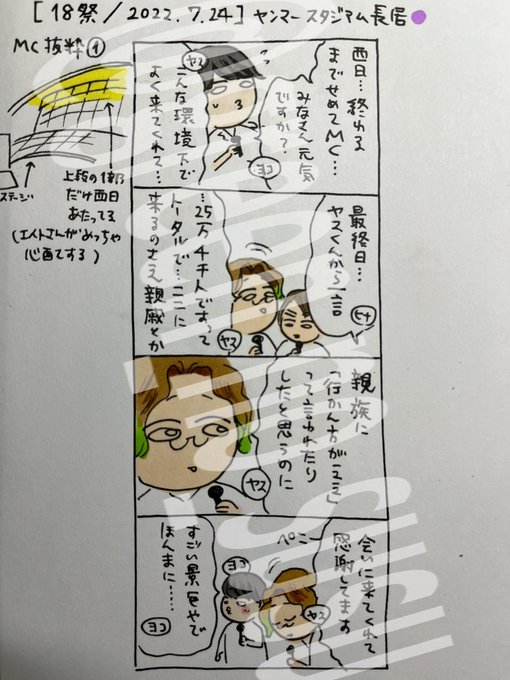 [18祭/2022.7.24]ヤンマースタジアム長居
MC抜粋①
ステージ
上段の1部
だけ西日
あたってる
(エイトさんがめっちゃ
心配する)
西日…終わる
までせめてMC…
みなさん元気
ですか?
ヨコ
ヤス
こんな環境下で
よく来てくれて…
最終日…
ヤスくんから一言
ヒナ
…25万4千人ですって
トータルで…ここに
来るのさえ親戚とか
ヤス
親族に
「行かん方がええ」
って言われたり
したと思うのに
ヤス
会いに来てくれて
感謝してます
ペこー
ヤス
ヨコ
すごい景色やで
ほんまに……
ヨコ